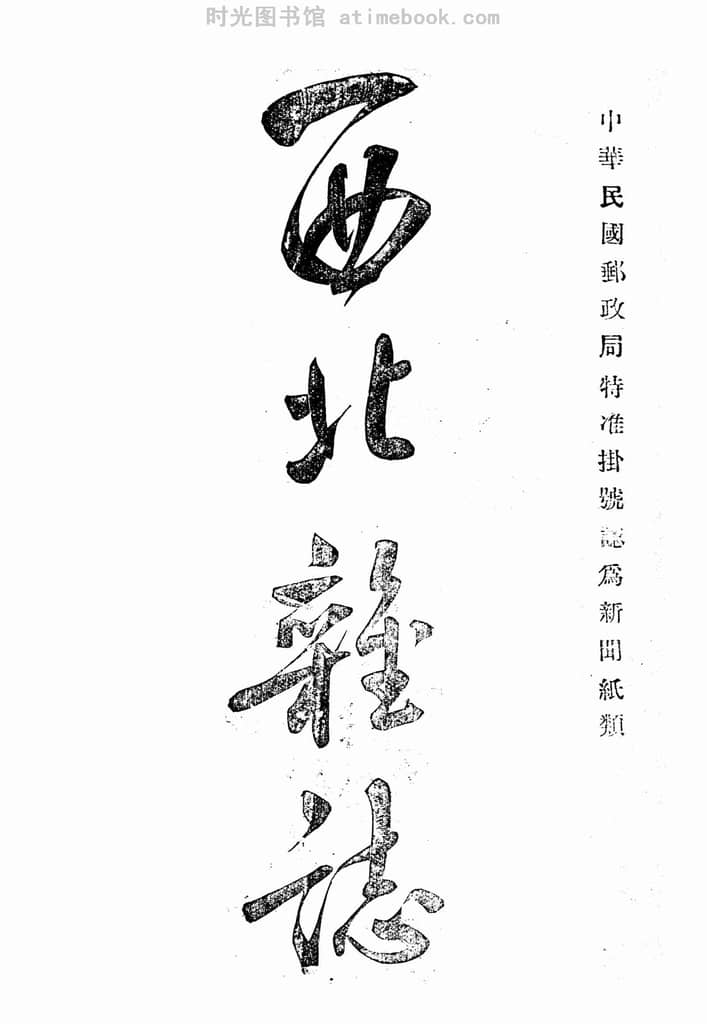 时光图书馆 atimebook.com
中華民國郵政局特准掛號認爲新聞紙類
西北雜誌